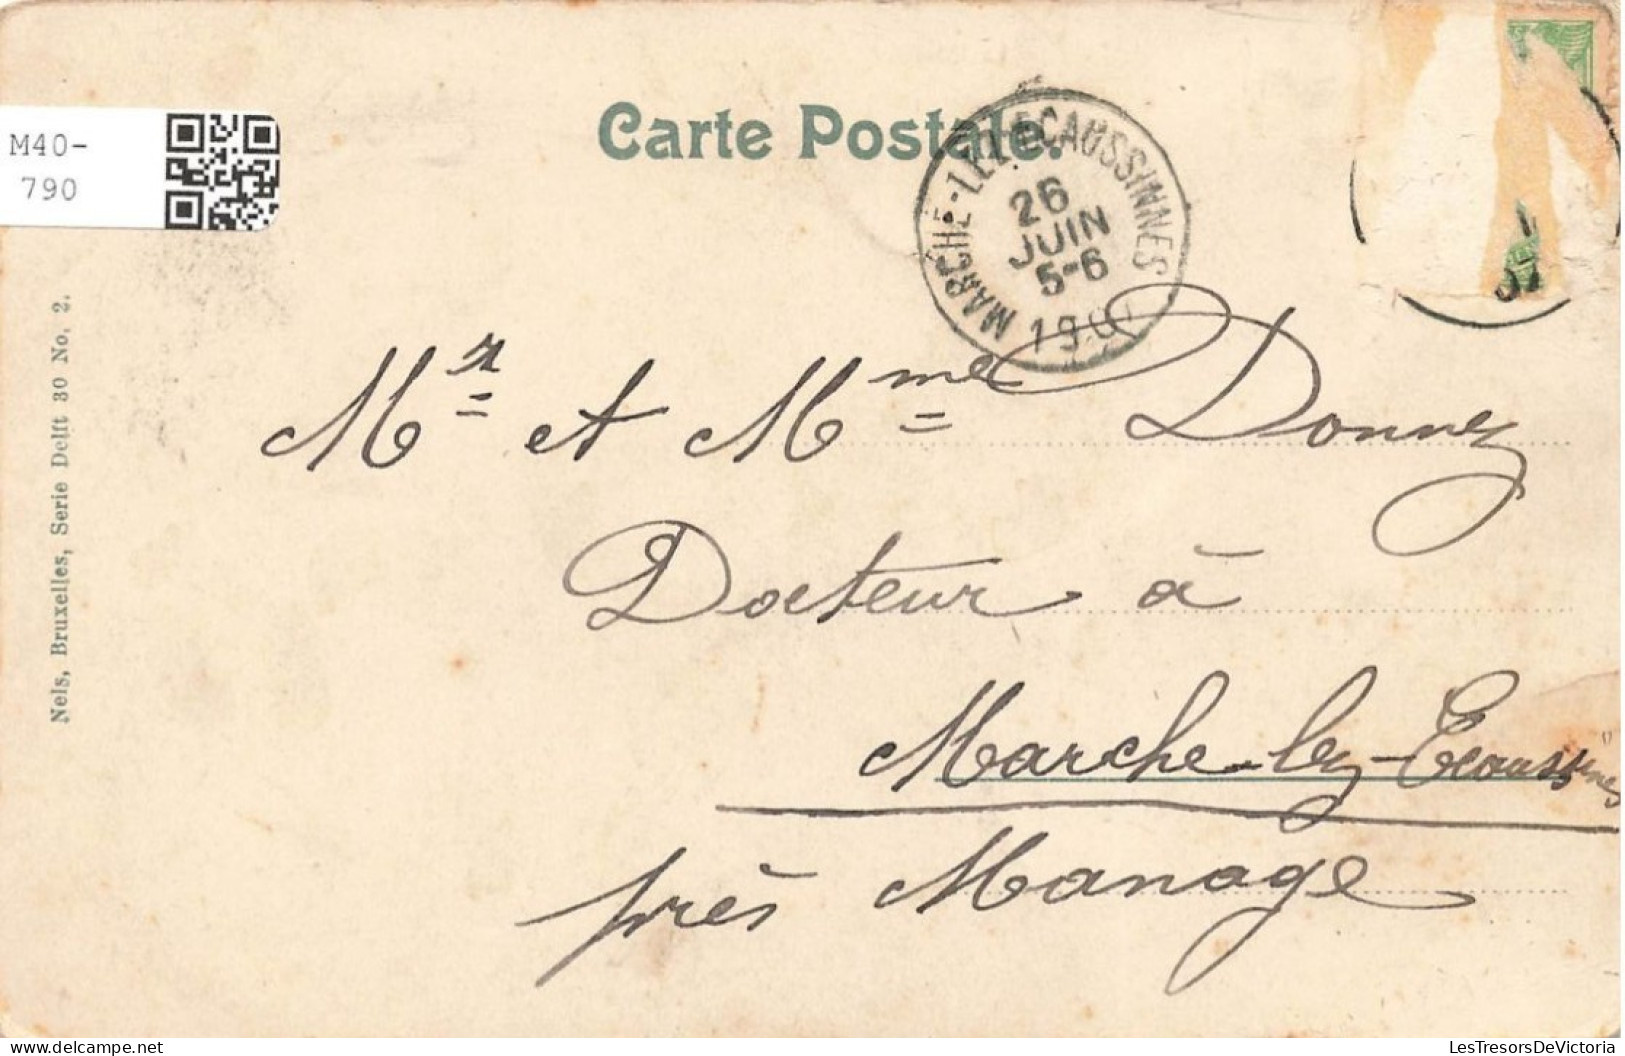 M40-
790
Carte Postale.
MARCHE-LEZ-ECAUSSINNES
26
JUIN
5-6
Mr et Mme Donnez
Docteur à
Marche-lez-Ecaussinnes
près Manage
Nels, Bruxelles, Serie Delft 30 No. 2.
LesTresorsDeVictoria
www.delcampe.net